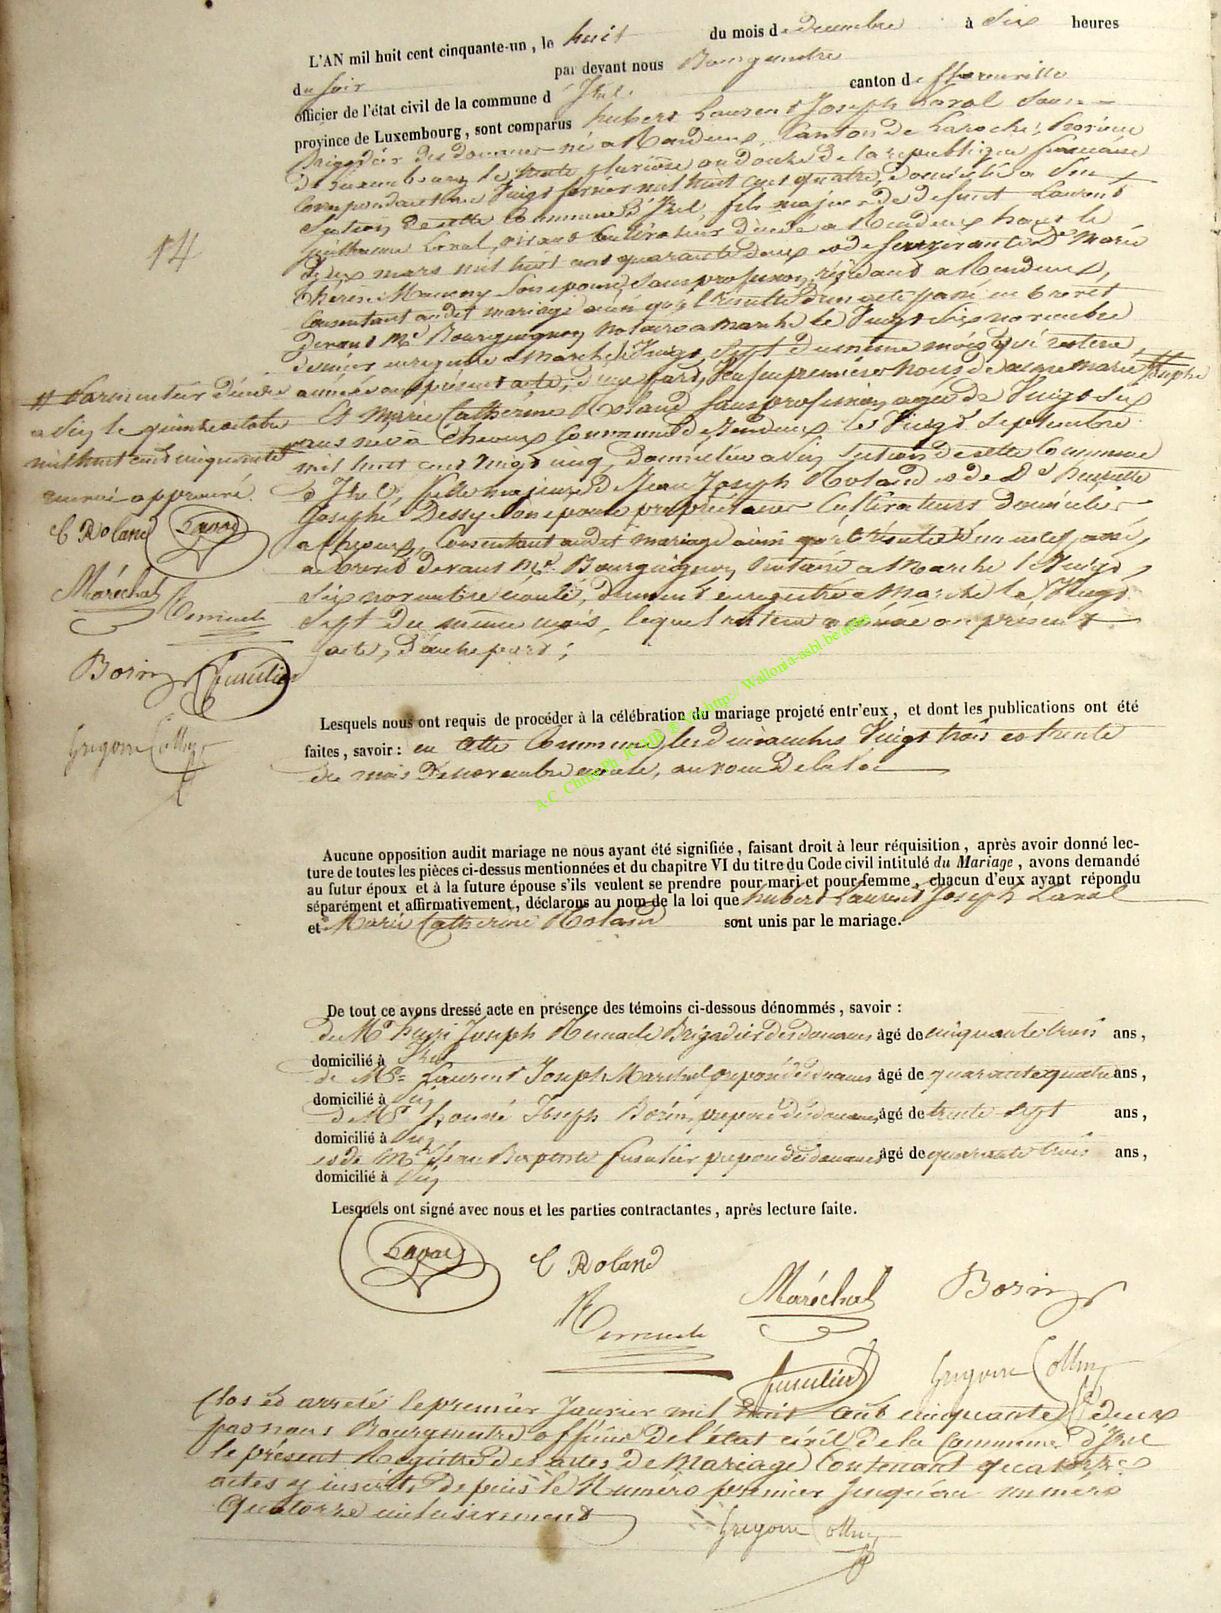 L'AN mil huit cent cinquante-un, le huit du mois de décembre à Six heures
du soir par devant nous Bourgmestre
officier de l'état civil de la commune d'Izel canton de florenville
province de Luxembourg, sont comparus hubert Laurent Joseph Laval Sous-
Brigadier des douanes né a Rendeux, Canton de Laroche, Province
de Luxembourg le trente pluviôse an douze de la république française
Correspondant au Vingt février mil huit cent quatre, domicilié a
Section de cette Commune d'Izel, fils majeur de defunt Laurent
Guilhaume Laval, vivant Cultivateur décédé a Rendeux haut le
deux mars mil huit cent quarante deux et de survivante De Marie
thérèse Son epouse, Sans profession, résidant a Rendeux,
Consentant au dit mariage ainsi qu'il résulte d'un acte passé en brevet
devant Me Bourguignon Notaire a Marche le Vingt Six novembre
dernier enregistré a Marche le Vingt Sept du même mois qui restera
14
annexé au présent acte, d'une part, Veuf en premières noces de anne marie Josephe
# décédée
a le quinze octobre
mil huit cent cinquante
renvoi approuvé.
C Roland Laval
Maréchal Remacle
Borin fusulier
Gregoire Collin
Et Marie Catherine Roland Sans profession agée de Vingt Six
ans née à Cheoux Commune de Rendeux le Vingt Septembre
mil huit cent Vingt cinq, domiciliée a Section de cette Commune
d'Izel, fille majeure de Jean Joseph Roland et de De henriette
Josephe Dessy Son epouse propriétaires Cultivateurs domiciliés
a Cheoux, Consentant audit mariage ainsi qu'il résulte d'un acte passé
en brevet devant Me Bourguignon Notaire a Marche le Vingt
Six novembre écoulé, dument enregistré a Marche le Vingt
Sept du même mois, lequel restera annexé au présent
acte, d'autre part;
Lesquels nous ont requis de procéder à la célébration du mariage projeté entr'eux, et dont les publications ont été
faites, savoir: en Cette Commune, les dimanches Vingt trois et trente
du mois de novembre écoulé, au vœu de la loi
A-C. http:// Wallonia-asbl.be
Aucune opposition audit mariage ne nous ayant été signifiée, faisant droit à leur réquisition, après avoir donné lec-
ture de toutes les pièces ci-dessus mentionnées et du chapitre VI du titre du Code civil intitulé du Mariage, avons demandé
au futur époux et à la future épouse s'ils veulent se prendre pour mari et pour femme, chacun d'eux ayant répondu
séparément et affirmativement, déclarons au nom de la loi que hubert Laurent Joseph Laval
et Marie Catherine Roland sont unis par le mariage.
De tout ce avons dressé acte en présence des témoins ci-dessous dénommés, savoir :
de Mr henri Joseph Remacle Brigadier des douanes âgé de cinquante trois ans,
domicilié à Izel
de Mr Laurent Joseph Marechal préposé des douanes âgé de quarante quatre ans,
domicilié à
de Mr Joseph Borin, préposé des douanes âgé de trente Sept ans,
domicilié à
et de Mr Jean Baptiste fusulier préposé des douanes âgé de quarante trois ans,
domicilié à
Lesquels ont signé avec nous et les parties contractantes, après lecture faite.
Laval C Roland
Remacle Maréchal Borin
fusulier Gregoire Collin
Clos et arreté le premier Janvier mil huit cent cinquante deux
par nous Bourgmestre officier de l'état civil de la Commune d'Izel
le présent Registre des actes de Mariage Contenant quatorze
actes y inscrits depuis le Numero premier Jusqu'au numero
Quatorze inclusivement
Gregoire Collin